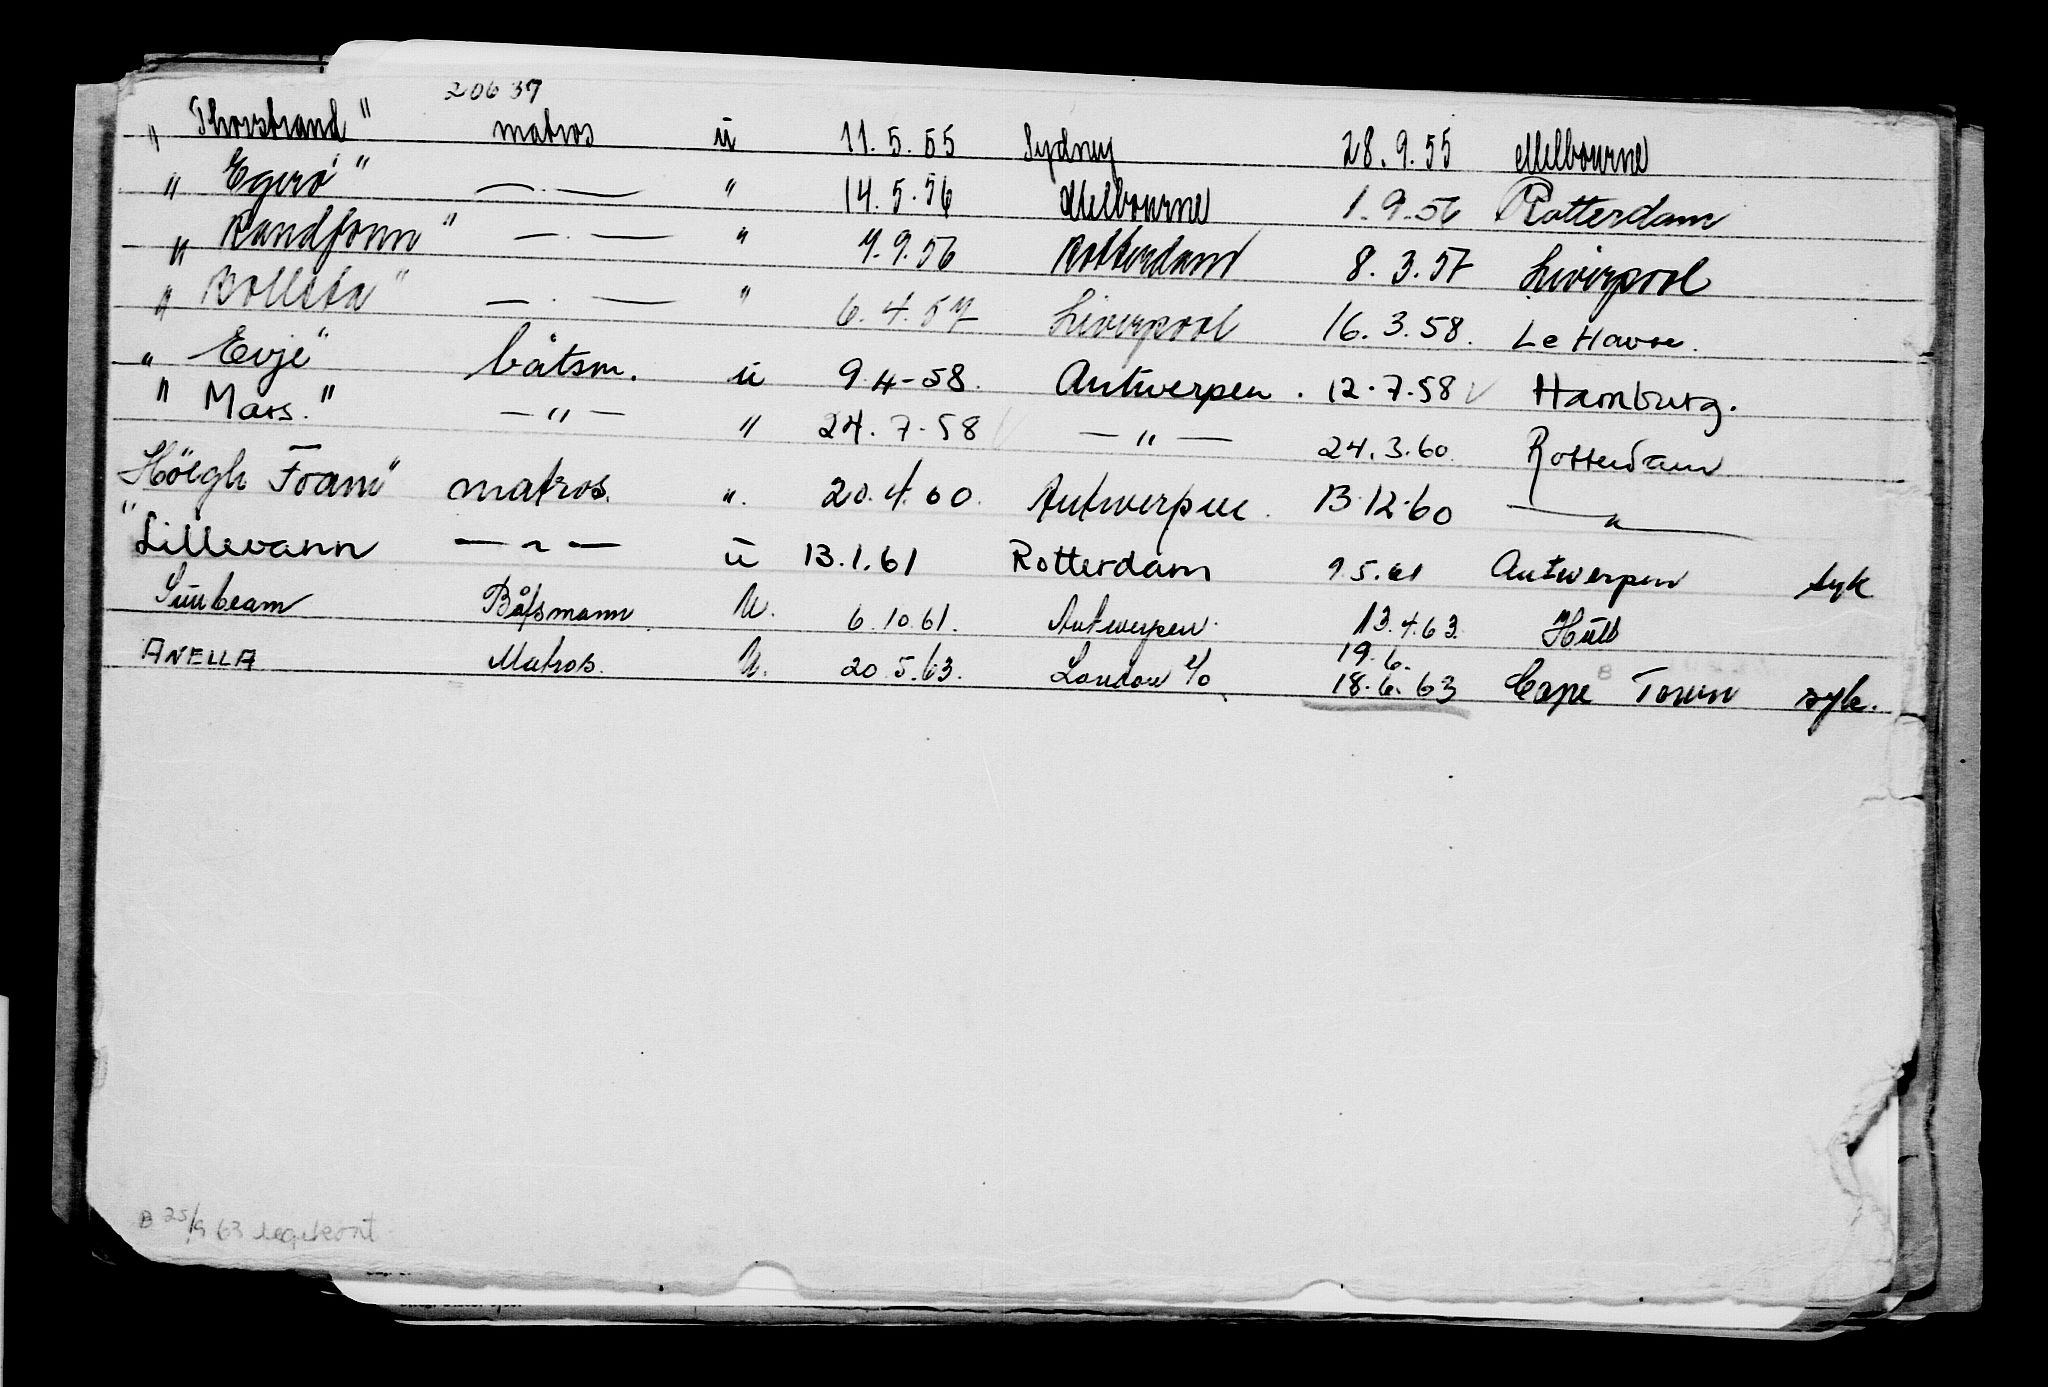 20637
" Thorstrand" matros ü 11.5.55 Sydney 28.9.55 Melbourne
" Egerö" — . — " 14.5.56 Melbourne 1.9.56 Rotterdam
" Randfonn" — . — " 7.9.56 Rotterdam 8.3.57 Liverpool
" Bollsta" — . — " 6.4.57 Liverpool 16.3.58. Le Havre.
" Evje" båtsm. ü 9.4-58. Antwerpen. 12.7.58 Hamburg.
" Mars." — " — " 24.7.58 — " — 24.3.60 Rotterdam
Höegh Foam" matros. ". 20.4.60. Antwerpen. 13.12.60 — " —
"Lillevann — " — ü 13.1.61 Rotterdam 9.5.61 Antwerpen syk
Sunbeam Båtsmann U. 6.10.61. Antwerpen. 13.4.63. Hull
19.6.
ANELLA Matros. U. 20.5.63. London 4/0 18.6.63 Cape Town syk.
B 25/9 63 legekont